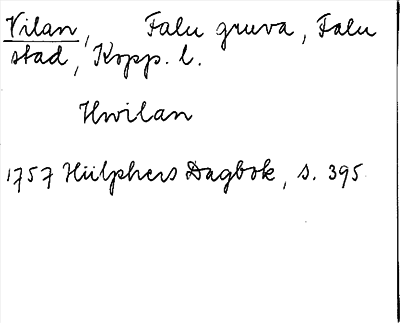 Vilan, Falu gruva, Falu
stad, Kopp. l.
Hwilan
1757 Hülphers Dagbok, s. 395